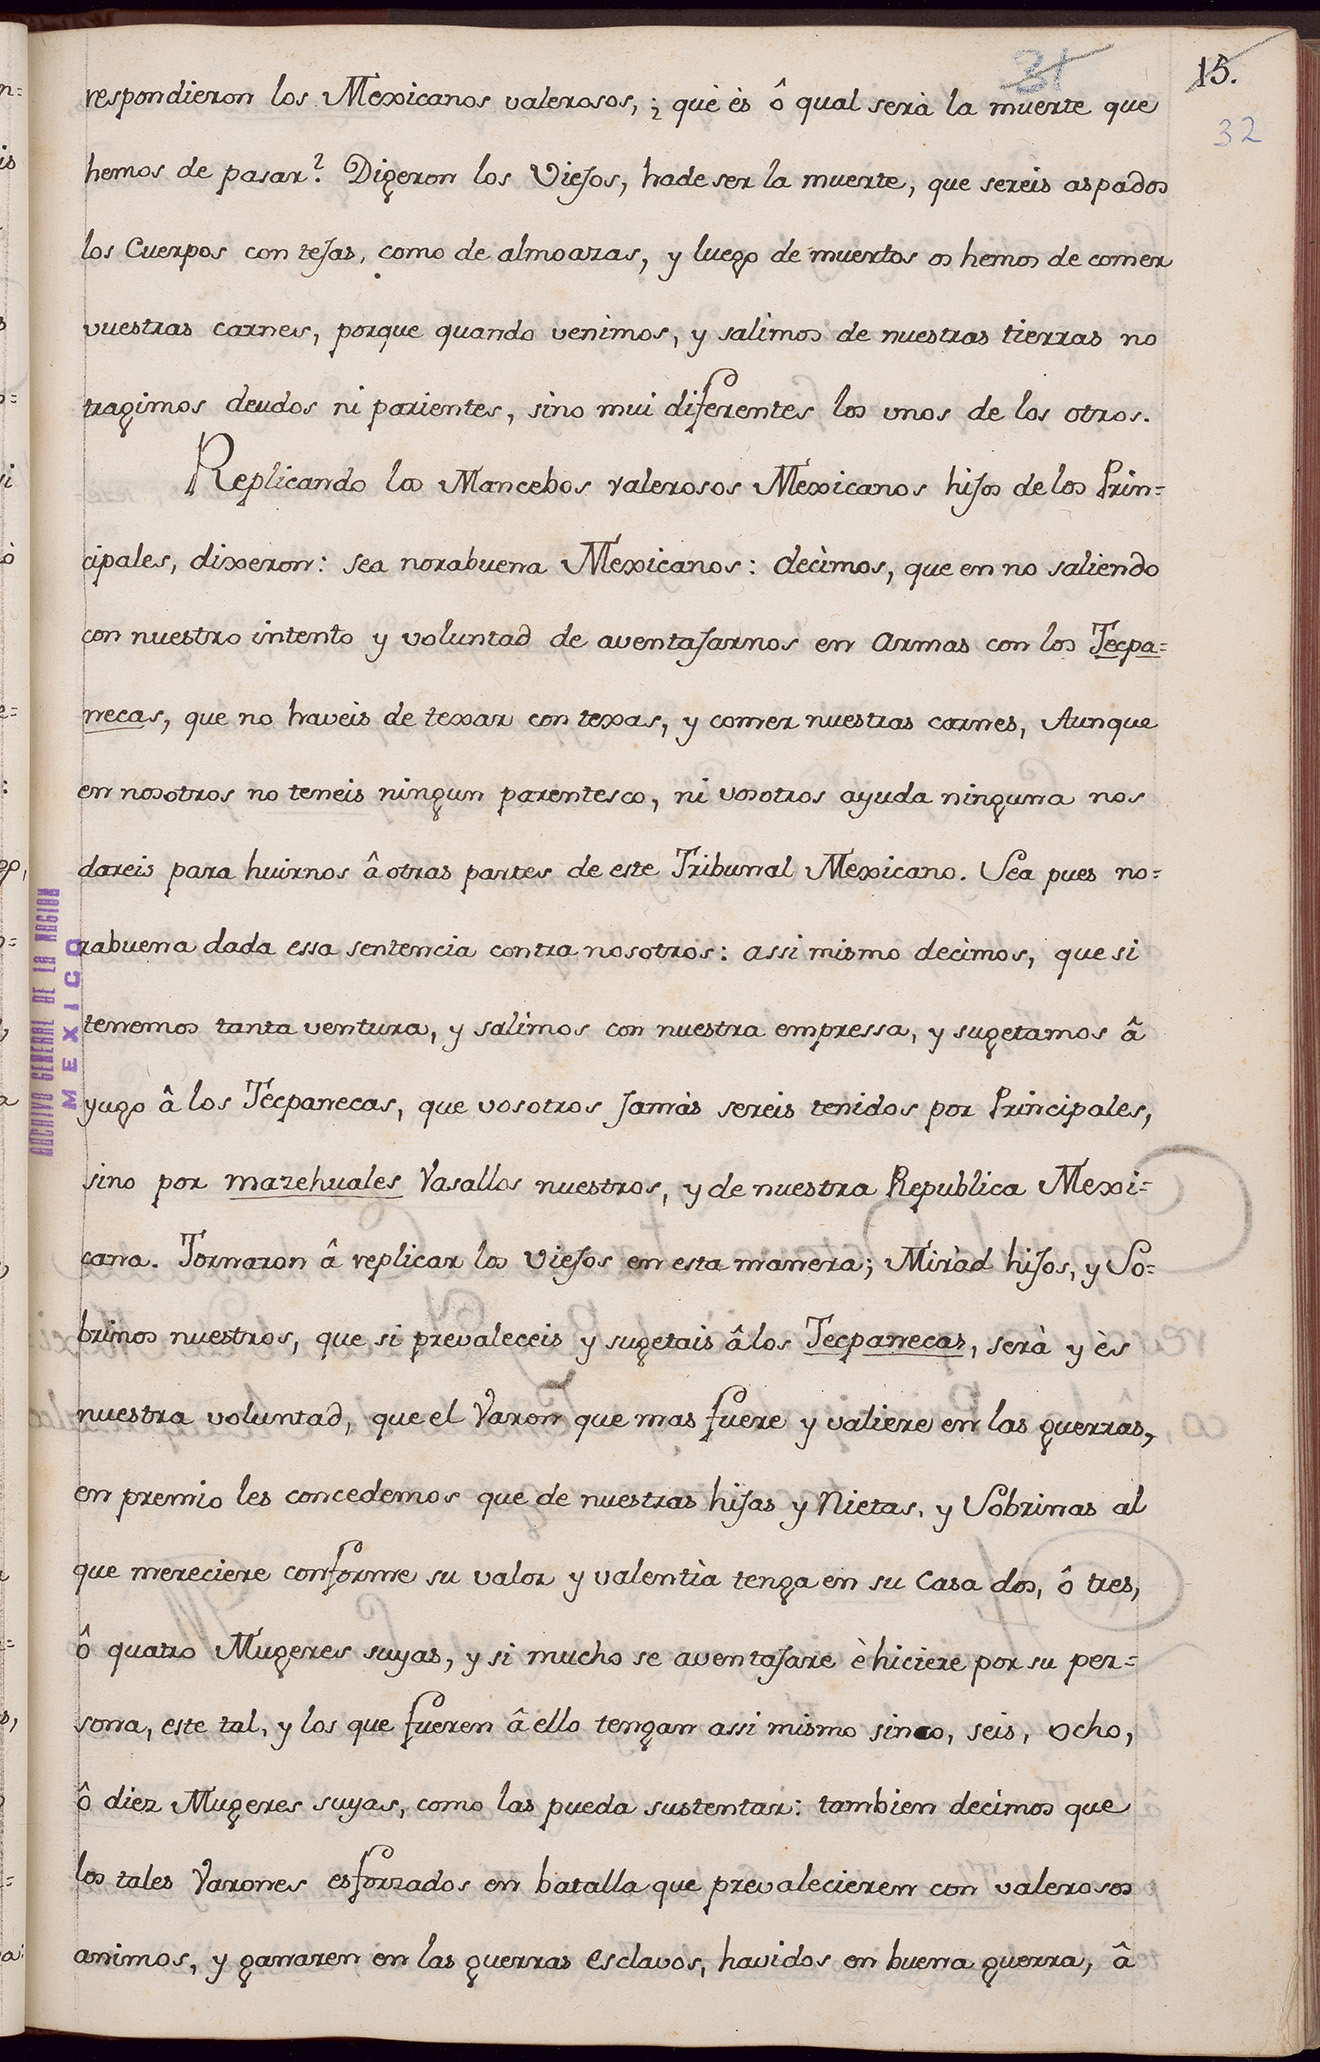 31
15.
32
respondieron los Mexicanos valerosos, ¿ què ès ô qual serà la muerte que
hemos de pasar? Digeron los Viejos, hade ser la muerte, que sereis aspados
los Cuerpos con tejas, como de almoazas, y luego de muertos os hemos de comer
vuestras carnes, porque quando venimos, y salimos de nuestras tierras no
tragimos deudos ni parientes, sino mui diferentes los unos de los otros.
Replicando los Mancebos valerosos Mexicanos hijos de los Prin=
cipales, dixeron: sea norabuena Mexicanos: decimos, que en no saliendo
con nuestro intento y voluntad de aventajarnos en armas con los Tecpa=
necas, que no haveis de texar con texas, y comer nuestras carnes, Aunque
en nosotros no teneis ningun parentesco, ni vosotros ayuda ninguna nos
dareis para huirnos â otras partes de este Tribunal Mexicano. Sea pues no=
rabuena dada essa sentencia contra nosotros: assi mismo decimos, que si
tenemos tanta ventura, y salimos con nuestra empressa, y sugetamos â
yugo â los Tecpanecas, que vosotros jamàs sereis tenidos por Principales,
sino por mazehuales Vasallos nuestros, y de nuestra Republica Mexi=
cana. Tornaron â replicar los Viejos en esta manera; Miràd hijos, y So=
brinos nuestros, que si prevaleceis y sugetais âlos Tecpanecas, serà y ès
nuestra voluntad, que el Varon que mas fuere y valiere en las guerras,
en premio les concedemos que de nuestras hijas y Nietas, y Sobrinas al
que mereciere conforme su valor y valentìa tenga en su Casa dos, ô tres,
ô quatro Mugeres suyas, y si mucho se aventajare è hiciere por su per=
sona, este tal, y los que fueren â ello tengan assi mismo sinco, seis, ocho,
ô diez Mugeres suyas, como las pueda sustentar: tambien decimos que
los tales Varones esforzados en batalla que prevalecieren con valerosos
animos, y ganaren en las guerras esclavos, havidos en buena guerra, â
ARCHIVO GENERAL DE LA NACION
MEXICO